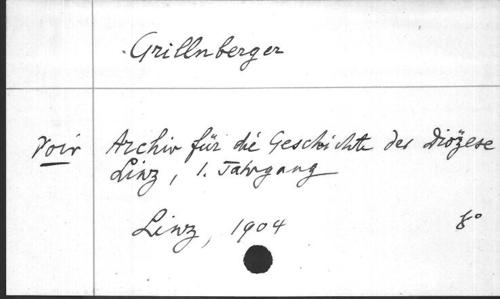 Grillnberger
Voir Archiv für die Geschichte der Diözese
Linz, 1. Jahrgang
Linz, 1904 8°